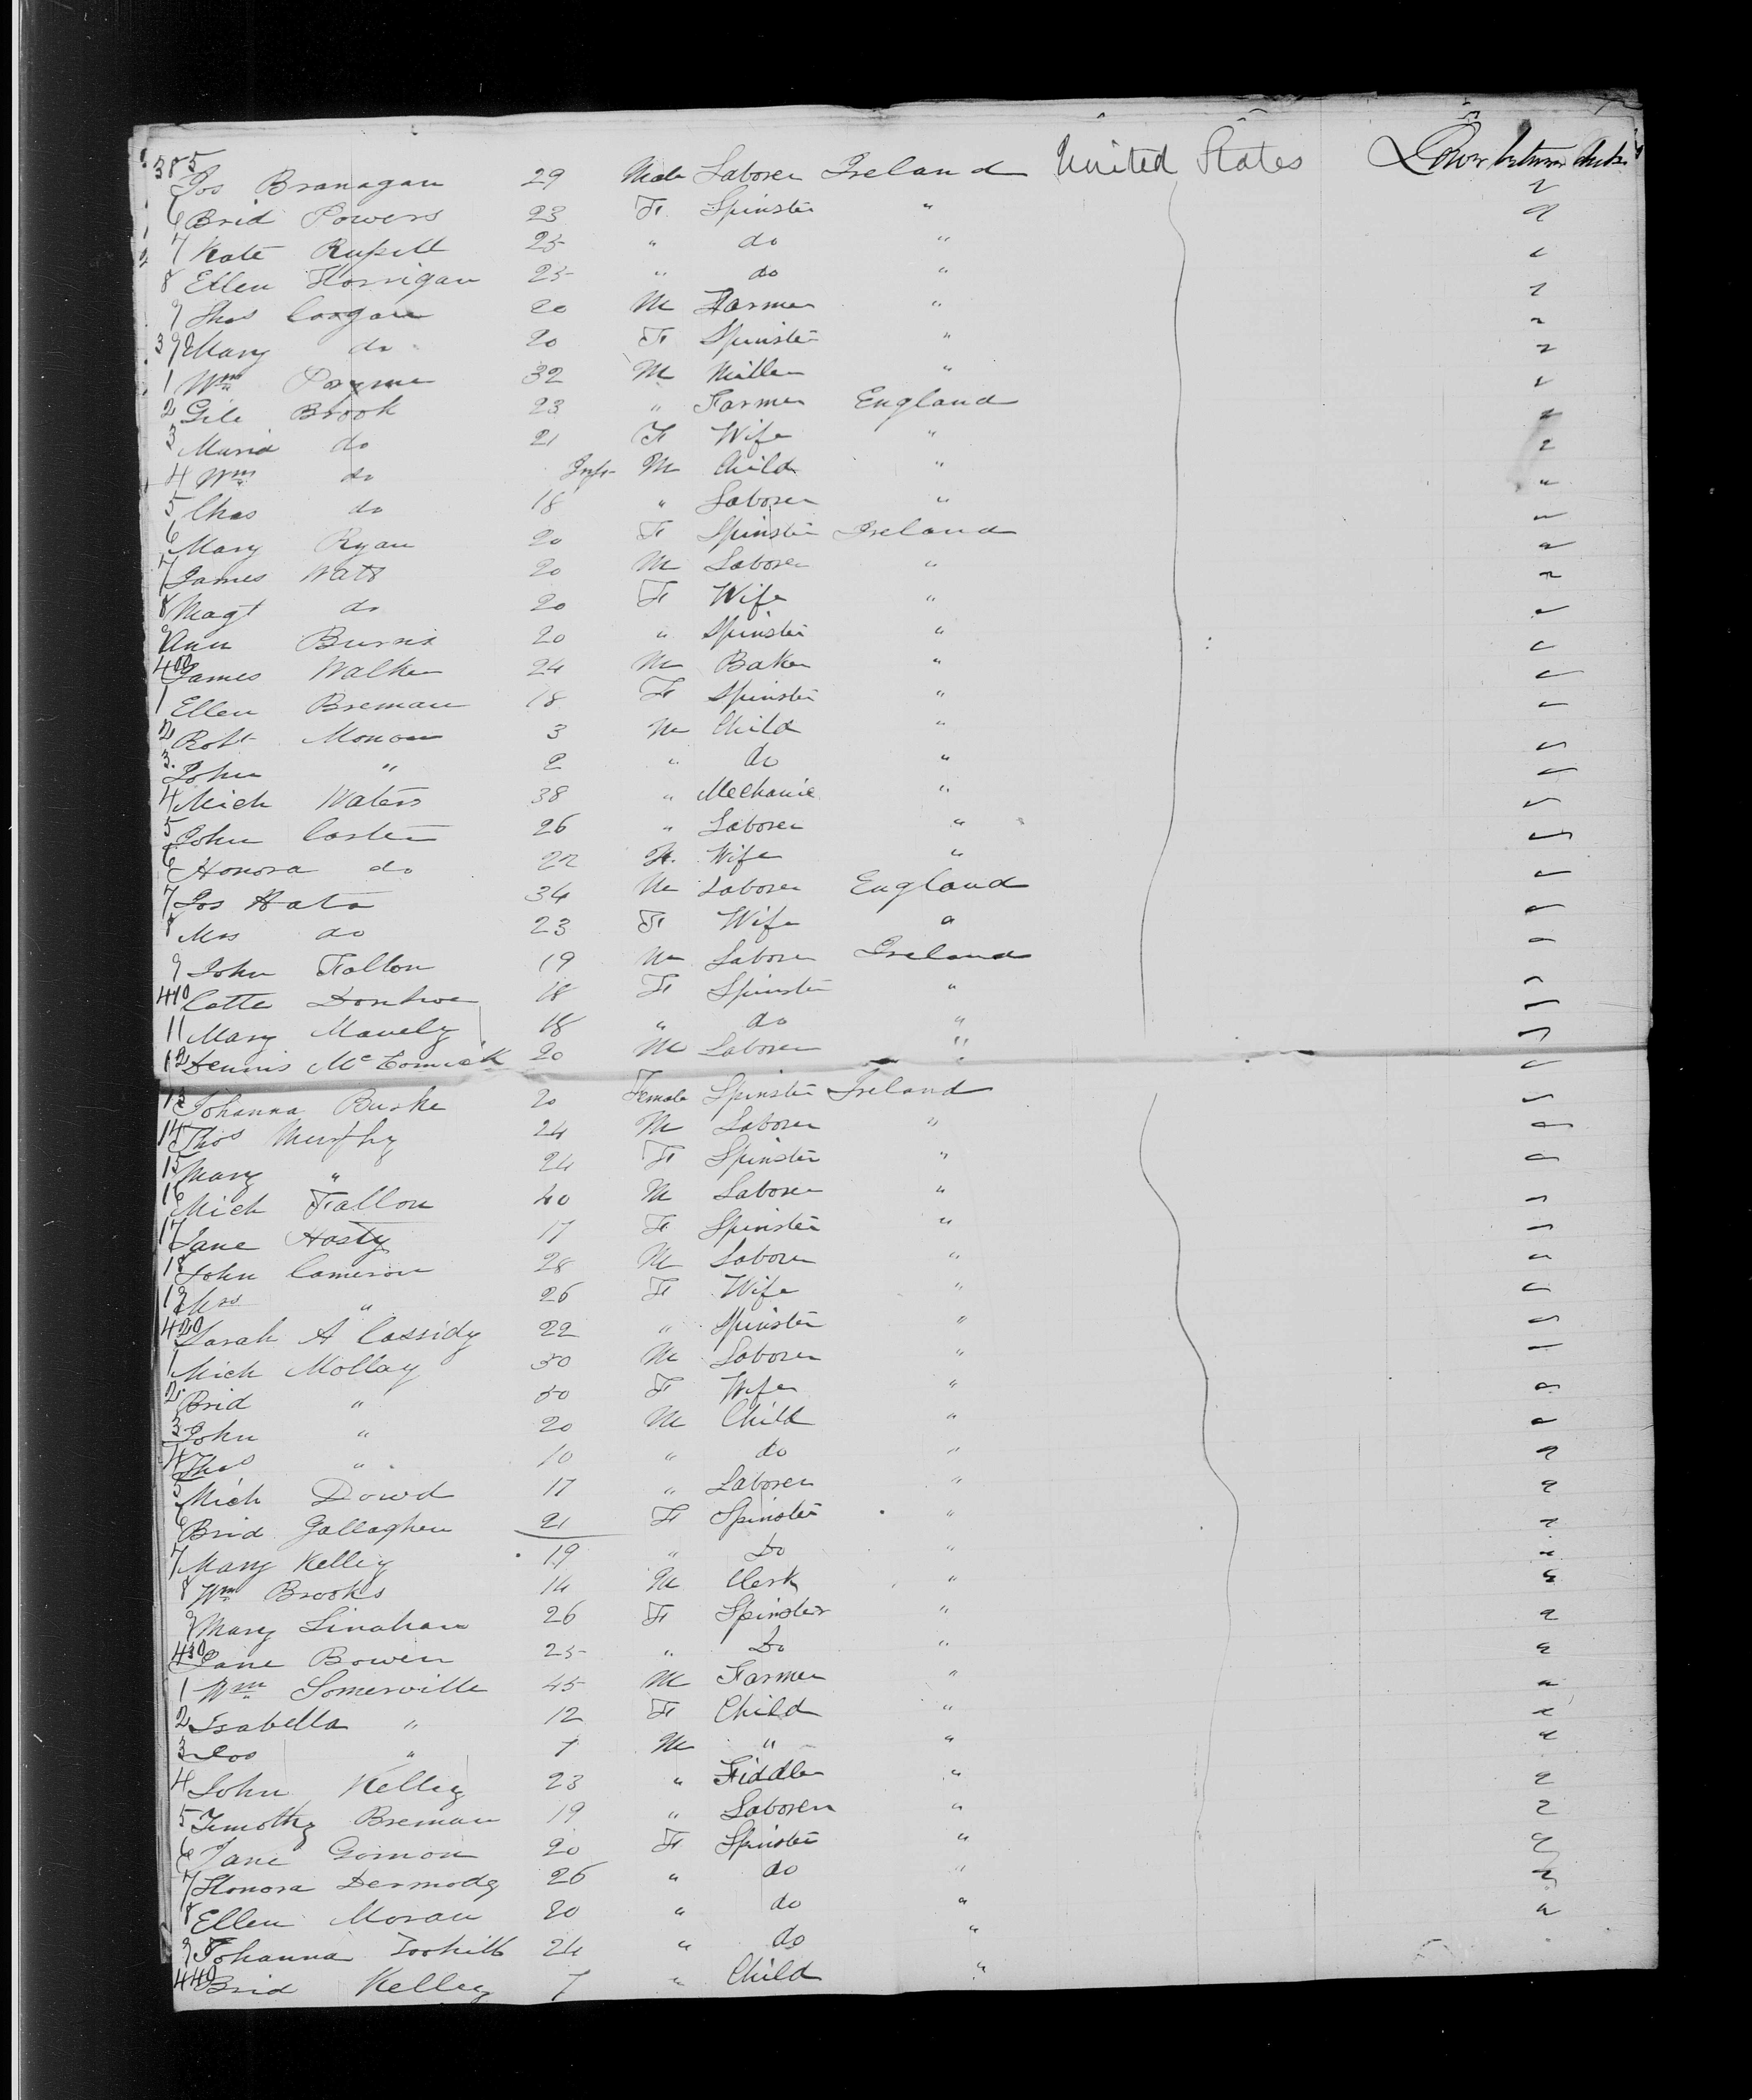 385 Jos Branagan 29 Male Laborer Ireland United States Lower between decks
6 Brid Powers 23 F. Spinster "
7 Kate Russell 25 " do "
8 Ellen Horrigan 25 " do "
9 Thos Coogan 20 M Farmer "
390 Mary do 20 F Spinster "
1 Wm Payne 32 M Miller "
2 Gile Brook 23 " Farmer England
3 Maria do 21 F Wife "
4 Wm do Inft M Child "
5 Chas do 18 " Laborer "
6 Mary Ryan 20 F Spinster Ireland
7 James Watt 20 M Laborer "
8 Magt do 20 F Wife "
9 Ann Burns 20 " Spinster "
400 James Walker 24 M Baker "
1 Ellen Breman 18 F Spinster "
2 Robt 3 M Child "
3 John " 2 " do "
4 Mich Waters 38 " Mechanic "
5 John Carter 26 " Laborer "
6 Honora do 22 F. Wife "
7 Jos 34 M Laborer England
8 Mrs do 23 F Wife "
9 John Fallon 19 M Laborer Ireland
410 Catte Donhue 18 F Spinster "
11 Mary Manely 18 " do "
12 Dennis McComick 20 M Laborer "
13 Johanna Burke 20 Female Spinster Ireland
14 Thos Murphy 24 M Laborer "
15 Mary " 24 F Spinster "
16 Mich Fallon 40 M Laborer "
17 Jane Hasty 17 F Spinster "
18 John Cameron 28 M Laborer "
19 Mrs " 26 F Wife "
420 Sarah A Cassidy 22 " Spinster "
1 Mich Mollay 50 M Laborer "
2 Brid " 50 F Wife "
3 John " 20 M Child "
4 Thos " 10 " do "
5 Mich Dowd 17 " Laborer "
6 Brid Gallagher 21 F Spinster "
7 Mary Kelley 19 " Do "
8 Wm Brooks 14 M Clerk "
9 Mary Linahan 26 F Spinster "
430 Jane Bowen 25 " Do "
1 Wm Somerville 45 M Farmer "
2 Isabella " 12 F Child "
3 Jos " 7 M " "
4 John Kelley 23 " Fiddler "
5 Timothy Breman 19 " Laborer "
6 Jane Gormon 20 F Spinster "
7 Honora Dermody 26 " do "
8 Ellen Moran 20 " do "
9 Johanna Toohill 24 " do "
440 Brid Kelley 7 " Child "